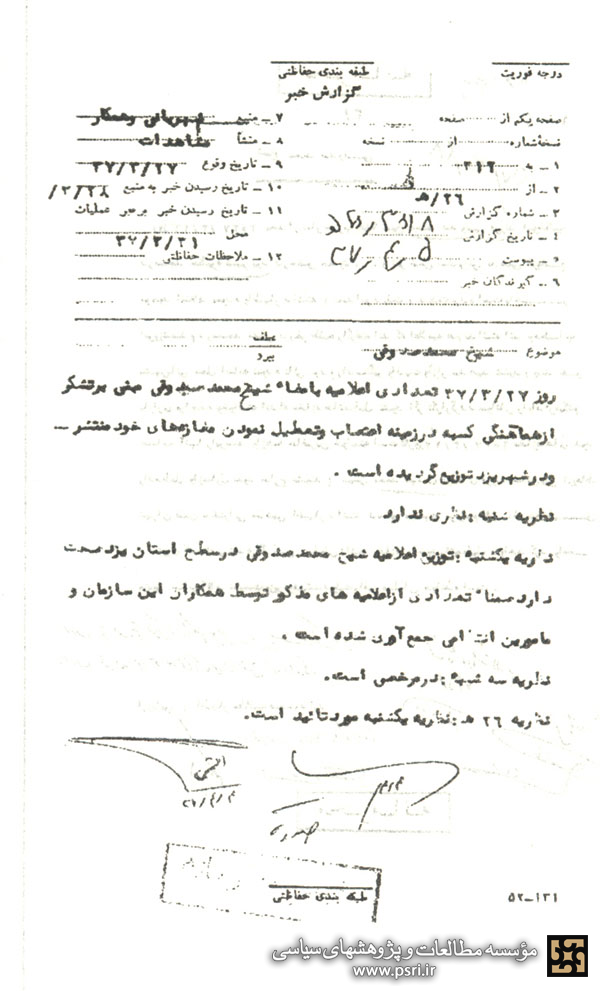 درجه فوریت
طبقه بندی حفاظتی
گزارش خبر
صفحه یکم از صفحه
نسخه شماره از نسخه
۱ ــ به ۳۱۲
۲ ــ از ۲۶/هـ
۳ ــ شماره گزارش
۴ ــ تاریخ گزارش
۵ ــ پیوست
۶ ــ گیرندگان خبر
۷ ــ منبع شهربانی وهمکار
۸ ــ منشأ مشاهدات
۹ ــ تاریخ وقوع ۳۷/۳/۲۷
۱۰ ــ تاریخ رسیدن خبر به منبع ۳/۲۸/
۱۱ ــ تاریخ رسیدن خبر برهبر عملیات
محل ۳۷/۳/۳۱
۱۲ ــ ملاحظات حفاظتی
موضوع شیخ محمد صدوقی
عطف
پیرو
روز ۳۷/۳/۲۷ تعدادی اعلامیه بامضاء شیخ محمد صدوقی مبنی برتشکر
ازهماهنگی کسبه درزمینه اعتصاب وتعطیل نمودن مغازه‌های خود منتشر ــ
ودرشهریزد توزیع گردیده است .
نظریه شنبه : نظری ندارد
نظریه یکشنبه : توزیع اعلامیه شیخ محمد صدوقی درسطح استان یزد صحت
دارد ضمناً تعدادی ازاعلامیه های مذکور توسط همکاران این سازمان و
مامورین انتظامی جمع آوری شده است .
نظریه سه شنبه : درمرخصی است .
نظریه ۲۶ هـ : نظریه یکشنبه مورد تائید است .
طبقه بندی حفاظتی
۵۲ــ۱۳۱
مؤسسه مطالعات و پژوهشهای سیاسی
www.psri.ir